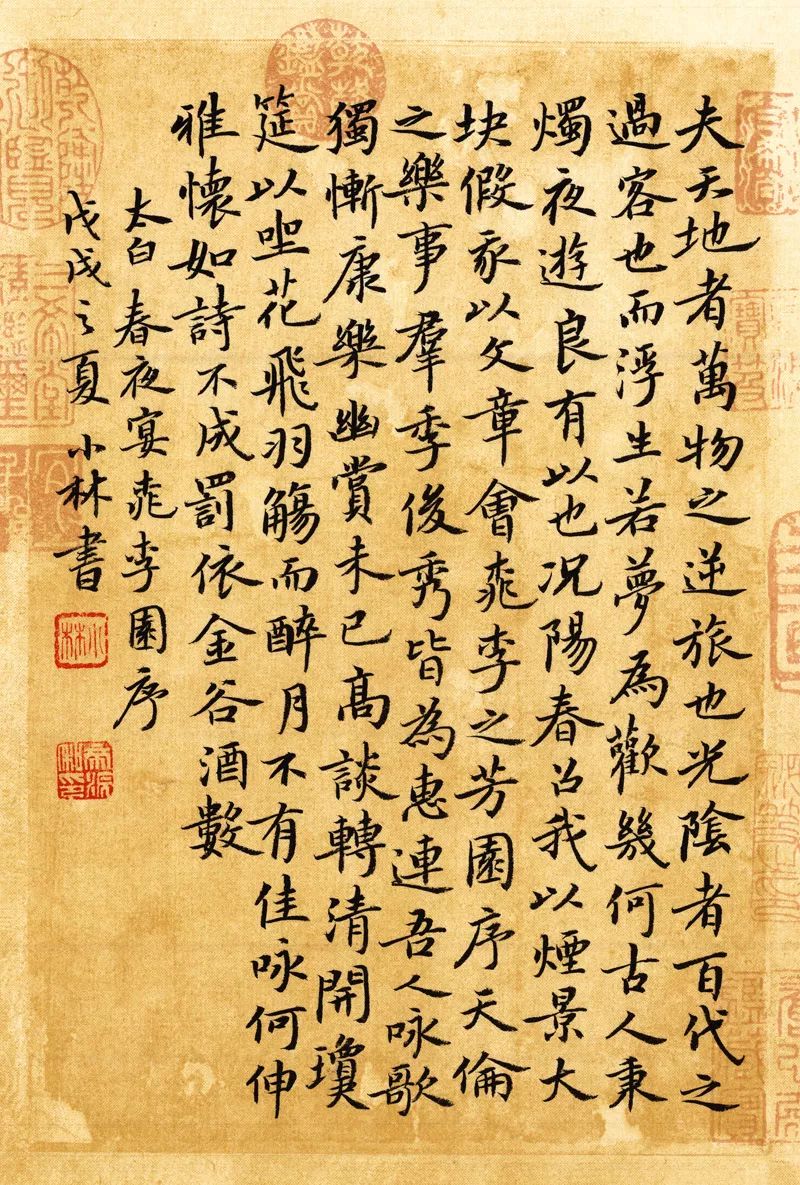 夫天地者萬物之逆旅也光陰者百代之
過客也而浮生若夢為歡幾何古人秉
燭夜遊良有以也况陽春召我以煙景大
块假我以文章會桃李之芳園序天倫
之樂事羣季俊秀皆為惠連吾人咏歌
獨慚康樂幽賞未已高談轉清開瓊
筵以坐花飛羽觴而醉月不有佳咏何伸
雅懷如詩不成罰依金谷酒數
太白春夜宴桃李園序
戊戌之夏小林書
小林